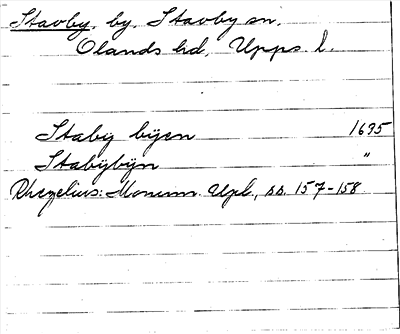 Stavby, by. Stavby sn.
Olands hd, Upps. l.
Staby bÿen 1695
Stabÿbÿn "
Rhezelius: Monum. Upl., ss. 157-158